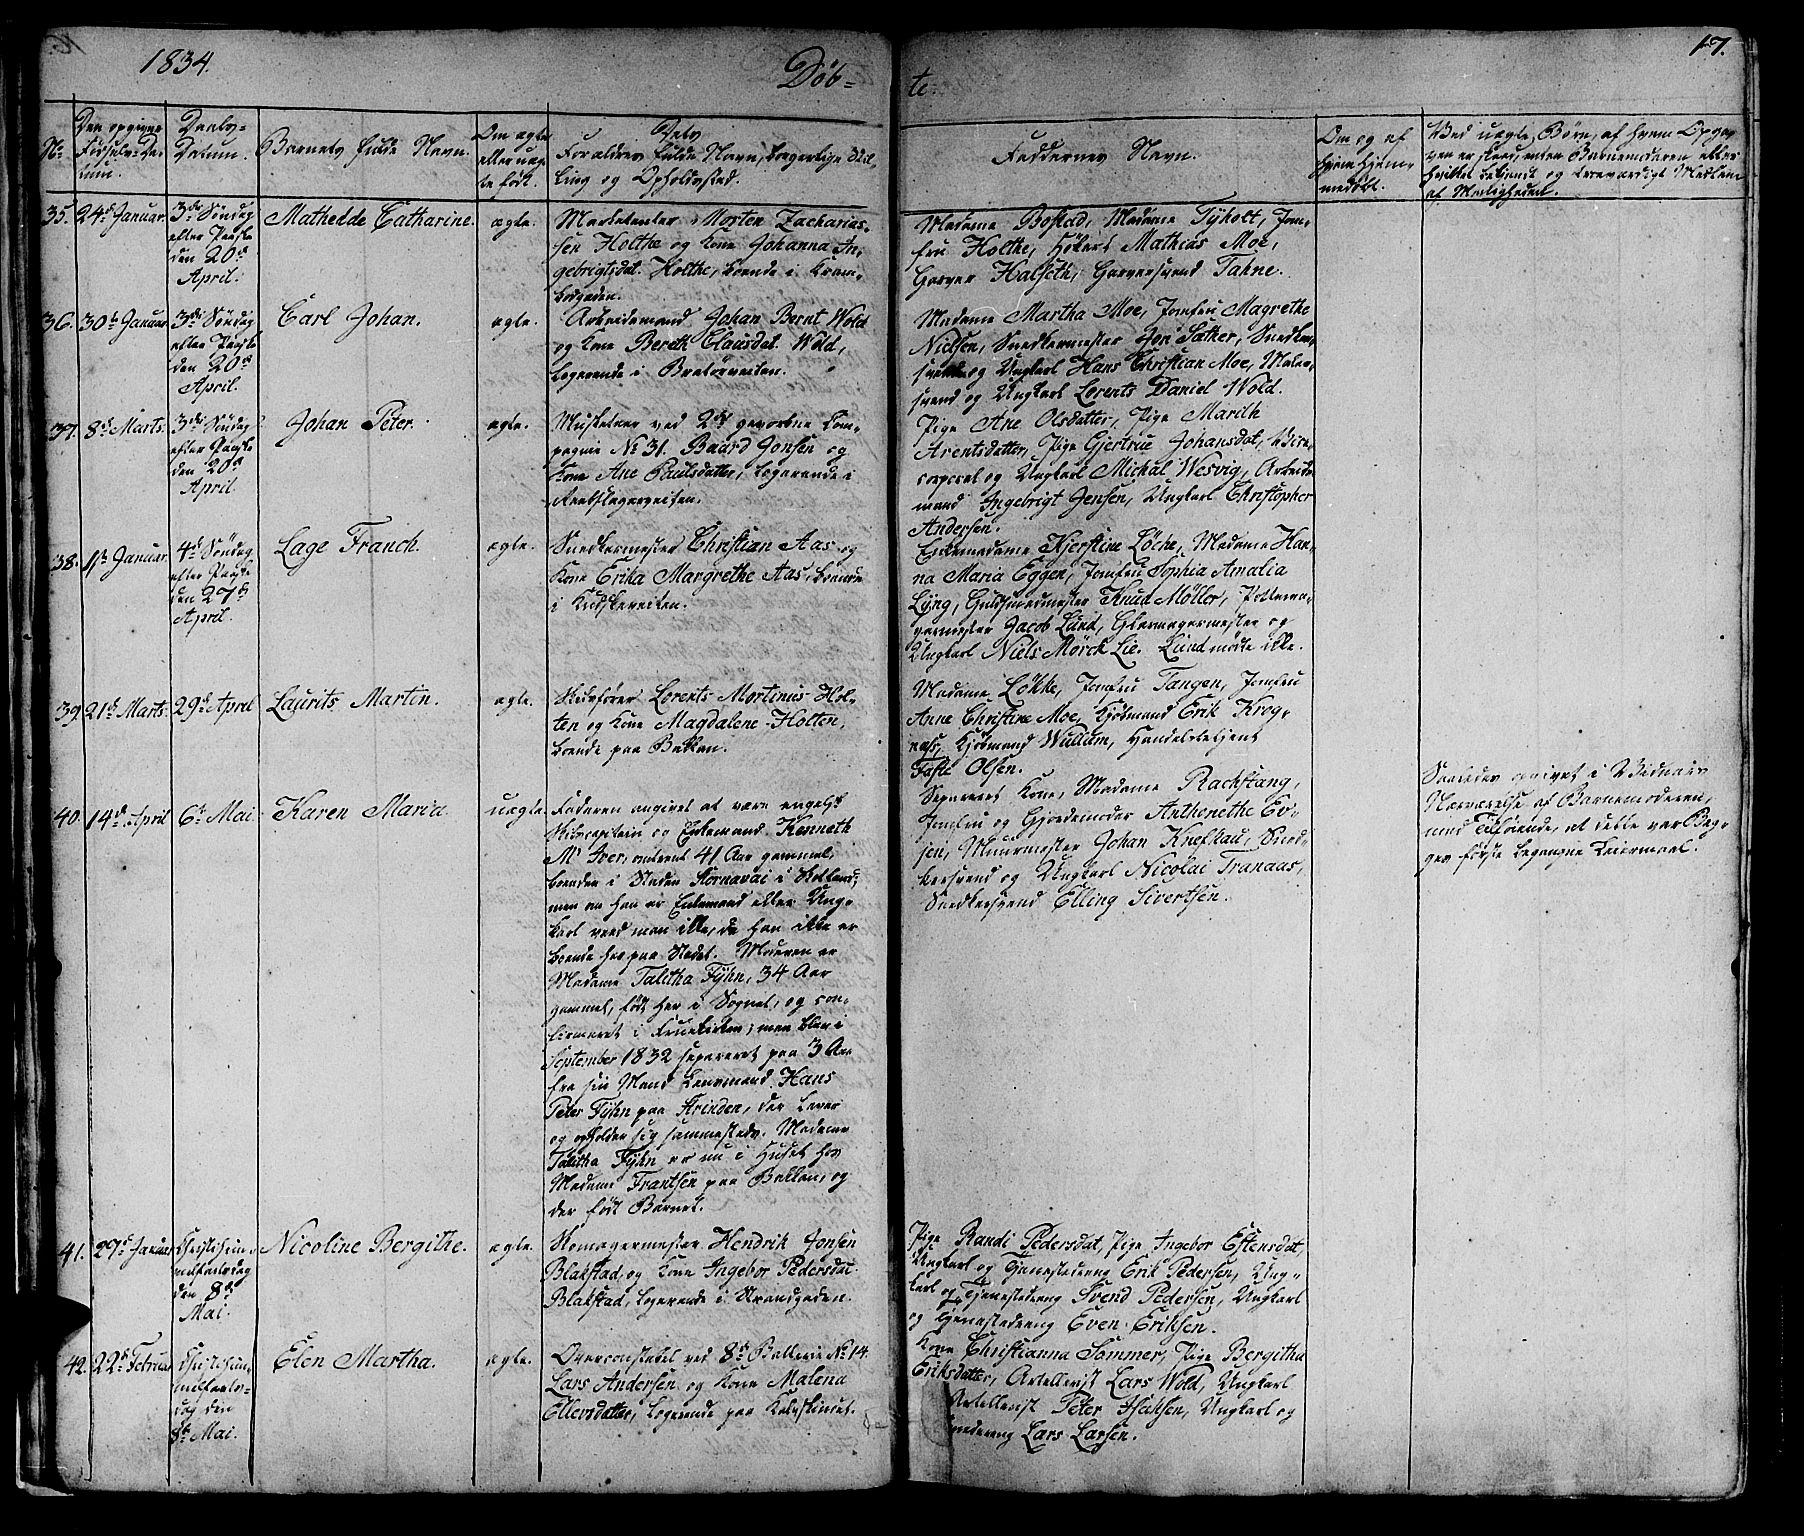 1834.
Døb=
te.
17.
No
Den opgivne Fødsels-Datum.
Daabs-Datum.
Barnets fulde Navn.
Om ægte eller uægte født.
Dets
Forældres fulde Navn, borgerlige Stilling og Opholdssted.
Faddernes Navn.
Om og af hvem hjemmedøbt.
Ved uægte Børn, af hvem Opgaven er skeed, enten Barnemoderen eller
35.
24de Januar.
3die Søndag
efter Paaske
den 20de
April.
Mathedde Catharine.
ægte.
Marketenter Morten Zacharias-
sen Holthe og Kone Johanna In-
gebrigtsdat. Holthe, boende i Kram-
bodgaden.
Madame Bostad, Madame Tyholt, Jom-
fru Holthe, Høker Mathias Moe,
Garver Halseth, Garversvend Tahne.
36.
30te Januar
3die Søndag
efter Paaske
den 20de
April.
Carl Johan.
ægte.
Arbeidsmand Johan Bernt Wold
og Kone Bereth Clausdat. Wold,
logerende i Bratørveiten.
Madame Martha Moe, Jomfru Magrethe
Nielsen, Snedkermester Jon Sather, Snedker-
svend og Ungkarl Hans Christian Moe, Maler-
svend og Ungkarl Lorents Daniel Wold.
37.
8de Marts.
3die Søndag
efter Paaske
den 20de
April.
Johan Peter.
ægte.
Musketeer ved 2det gevorbne Com-
pagnie No 31. Baard Jonsen og
Kone Ane Paulsdatter, logerende i
Pige Ane Olsdatter, Pige Marith
Arentsdatter, Pige Gjertrue Johansdat, Vice-
corporal og Ungkarl Michal Wesvig, Arbeids-
mand Ingebrigt Jensen, Ungkarl Christopher
Andersen.
38.
11te Januar.
4de Søndag
efter Paaske
den 27de
April.
Lage Franch.
ægte.
Snedkermester Christian Aas og
Kone Erika Margrethe Aas, boende
i Kudskeveiten.
Enkemadame Kjerstine Løche, Madame Han-
na Maria Eggen, Jomfru Sophia Amalia
Lyng, Guldsmedmester Knud Møller, Pottema-
germester Jacob Lund, Glarmagermester og
Ungkarl Niels Mørck Lie. Lund mødte ikke.
39.
21de Marts.
29de April
Laurits Martin.
ægte.
Skibsfører Lorents Mortinus Hol-
ten og Kone Magdalene Holten,
boende paa Bakken.
Madame Løkke, Jomfru Tangen, Jomfru
Anne Christine Moe, Kjøbmand Erik Krog-
næss, Kjøbmand Wullum, Handelsbetjent
Faste Olsen.
40.
14de April
6te Mai
Karen Maria.
uægte.
Faderen angivet at være engelsk
Skibscapitein og Enkemand Kenneth
Mc Iver, omtrent 41 Aar gammel,
boende i Staden Stornavai i Skotland;
men om han er Enkemand eller Ung-
karl veed man ikke, da han ikke er
boende her paa Stedet. Moderen er
Madame Talitha Fyhn, 34 Aar
gammel, født her i Sognet, og con-
firmeret i Fruekirken; men blev i
September 1832 separeret paa 3 Aar
fra sin Mand Lensmand Hans
Peter Fyhn paa Strinden, der lever
og opholder sig sammesteds. Madame
Talitha Fyhn er nu i Huset hos
Madame Frantsen paa Bakken, og
der født Barnet.
Separeret Kone, Madame Rachstang,
Jomfru og Gjordemoder Anthonethe Ev-
jen, Muurmester Johan Knefstau, Sned-
kersvend og Ungkarl Nicolai Tranaas,
Snedkersvend Elling Sivertsen.
Saaledes angivet i Vidners
Nærværelse af Barnemoderen,
med Tilføiende, at dette var Beg-
ges første begangne Leiermaal.
41.
27de Januar
den 8de
Mai.
Nicoline Bergithe.
ægte.
Skomagermester Hendrik Jonsen
Blakstad, og Kone Ingebor Pedersdat.
Blakstad, logerende i Strandgaden.
Pige Randi Pedersdat, Pige Ingebor Estensdat,
Ungkarl og Tjenestedreng Erik Pedersen, Ung-
karl og Tjenestedreng Svend Pedersen, Ungkarl
og Tjenestedreng Even Eriksen.
42.
22de Februar
dag den
8de Mai.
Elen Martha.
ægte.
Overconstabel ved 8de Batterie No 14.
Lars Andersen og Kone Malena
Ellersdatter, logerende paa Kalvskindet.
Kone Christianna Sommer, Pige Bergitha
Eriksdatter, Artellerist Lars Wold, Ungkarl
Artellerist Peter Hansen, Ungkarl og
Lars Larsen.